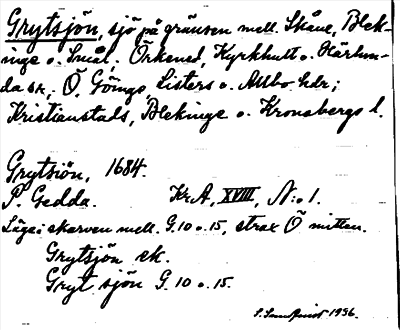 Grytsjön, sjö på gränsen mell. Skåne, Blek-
inge o. Smål. Örkened, Kyrkhult o. Härlun-
da sk., Ö. Göings Listers o. Allbo hdr;
Kristianstads, Blekinge o. Kronobergs l.
Grytsiön, 1684.
P. Gedda. Kr. A, XVIII, N:o 1.
Läge i skarven mell. G. 10 o. 15, strax Ö mitten.
Grytsjön ek.
Gryt sjön G. 10 o. 15.
1936.